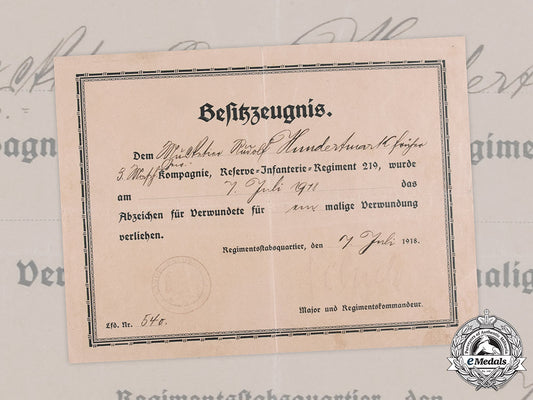 Besitzeugnis.
Dem Musketier Rudolf Hundertmark früher
3. Kompagnie, Reserve-Infanterie-Regiment 219, wurde
am 7. Juli 1918 das
Abzeichen für Verwundete für ein malige Verwundung
verliehen.
Regimentsstabsquartier, den 7 Juli 1918.
Major und Regimentskommandeur.
Lfd. Nr. 540.
eMedals